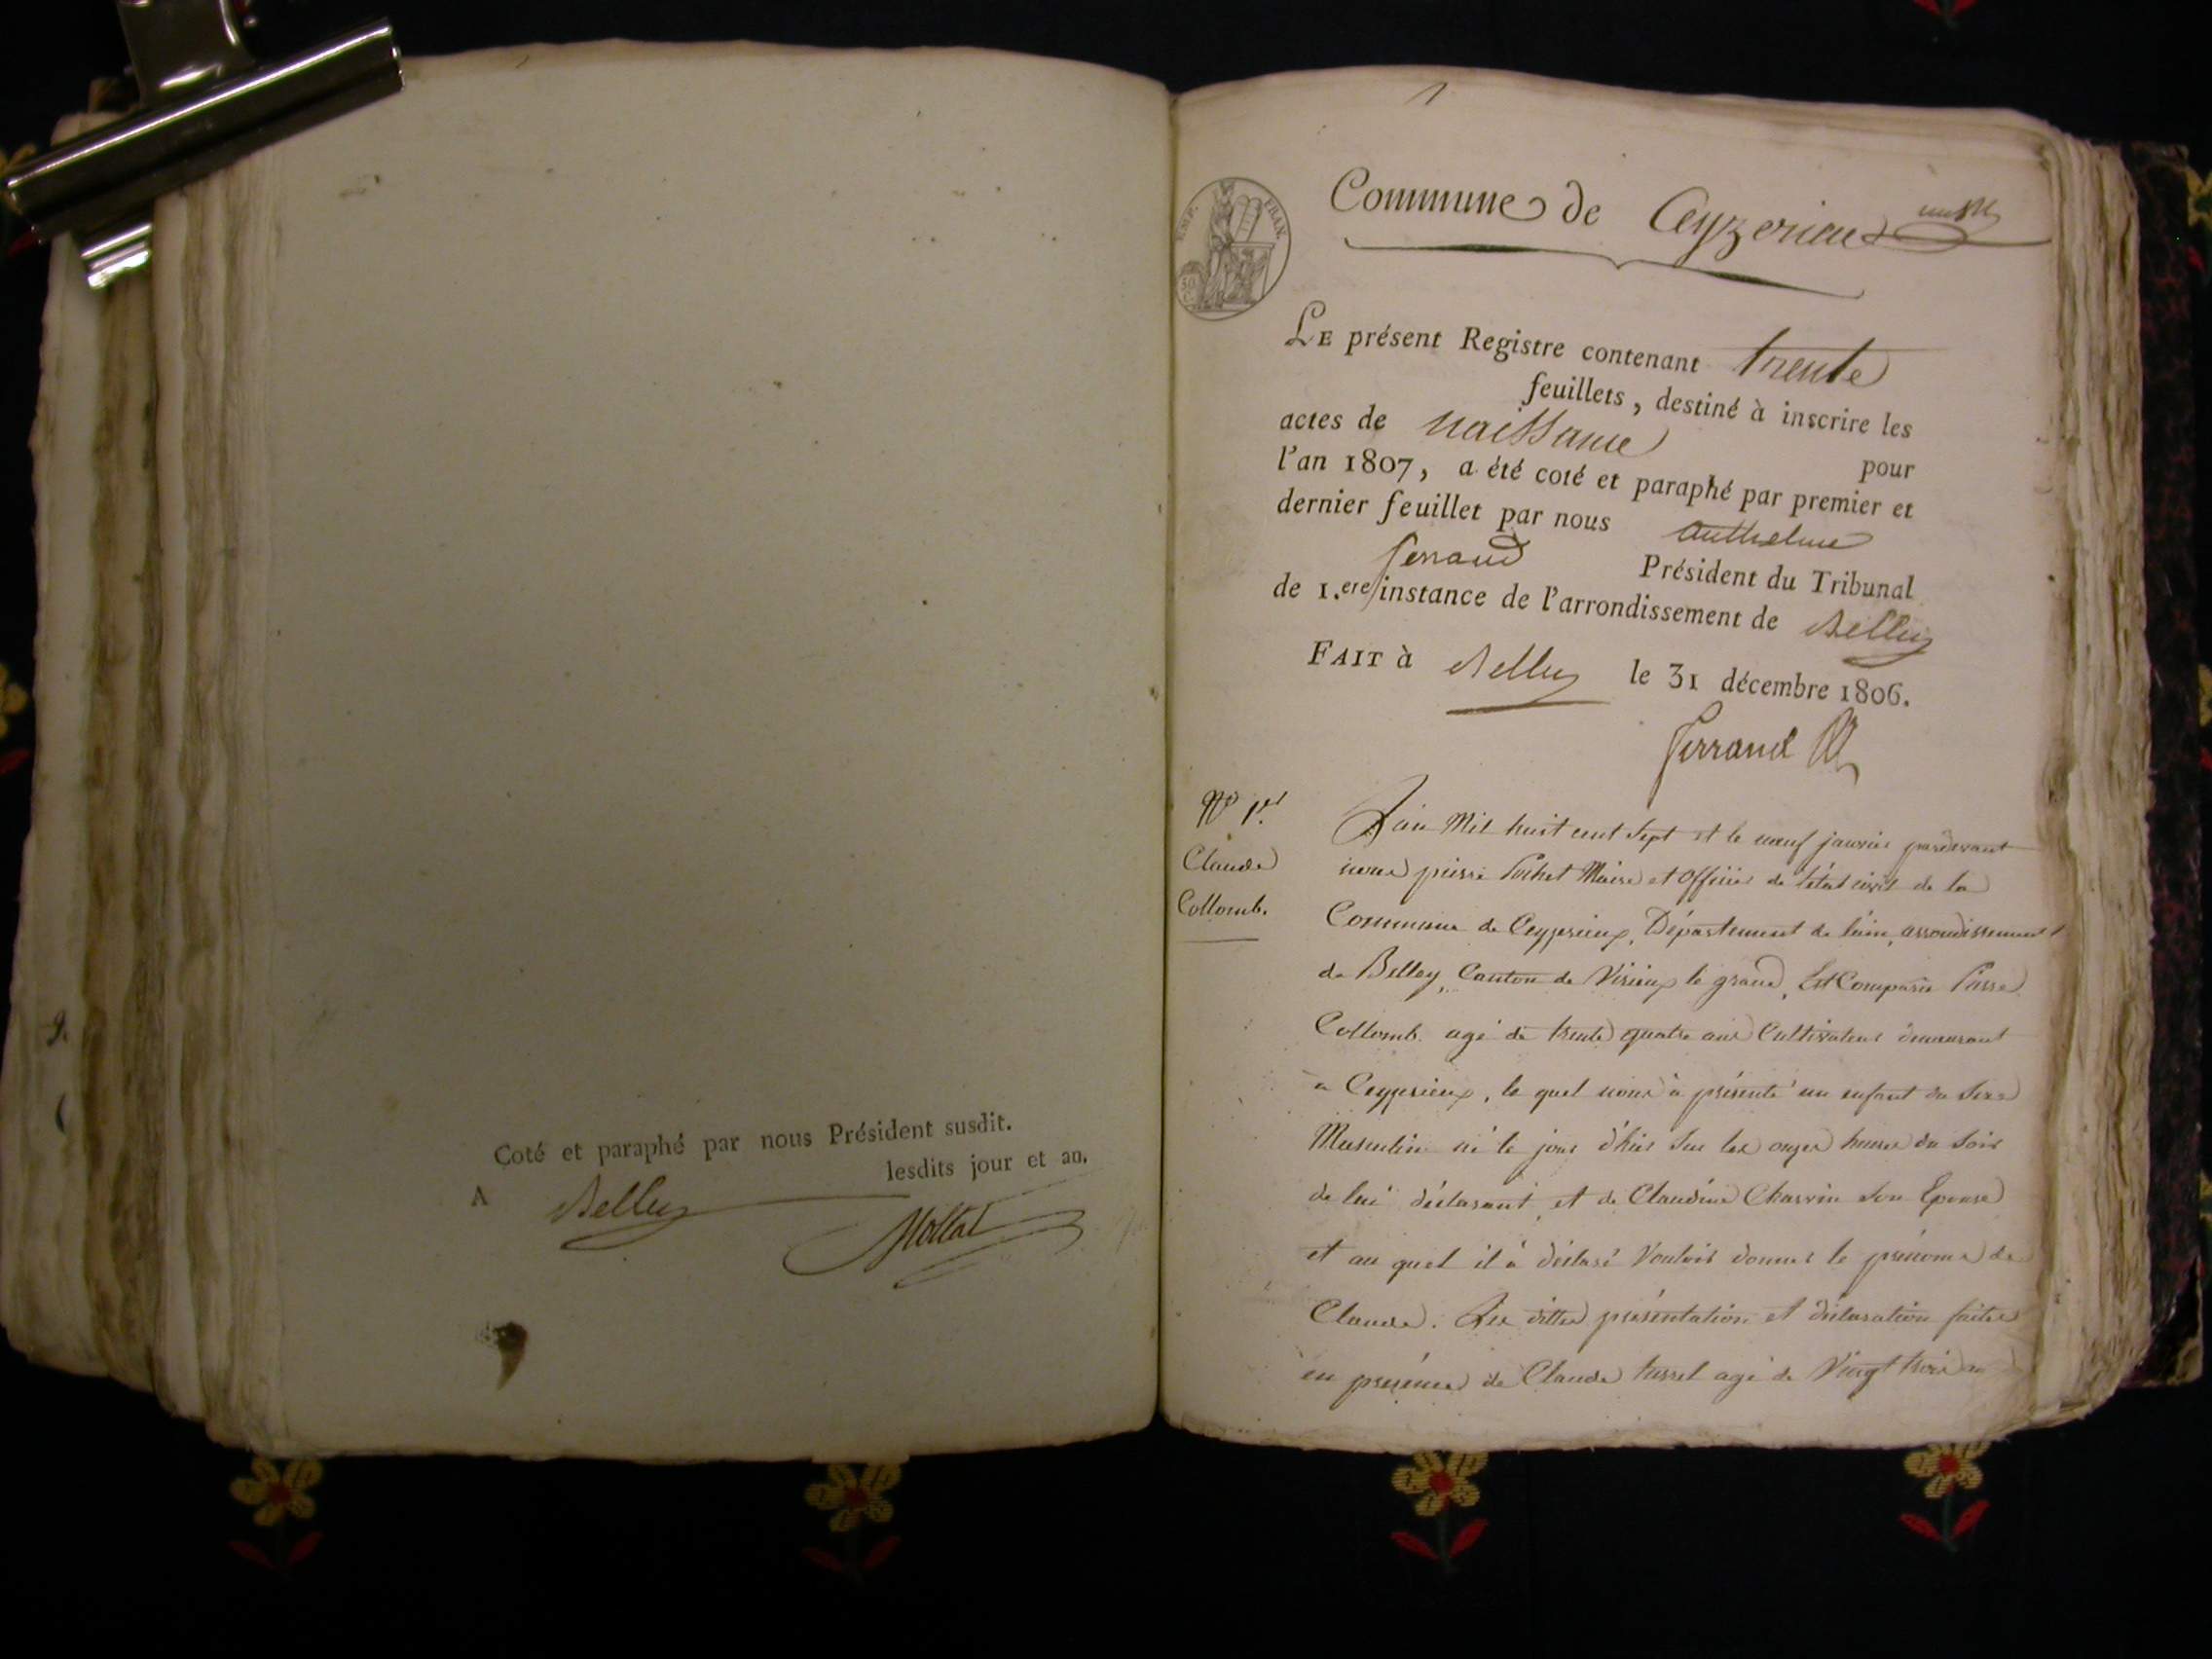 Coté et paraphé par nous Président susdit.
lesdits jour et an.
A Belley
Mollat
1
Commune de Ceyzerieu
EMP. FRAN.
50
LE présent Registre contenant trente
feuillets, destiné à inscrire les
actes de naissance pour
l'an 1807, a été coté et paraphé par premier et
dernier feuillet par nous Anthelme
ferrand Président du Tribunal
de 1.ere instance de l'arrondissement de Belley
FAIT à Belley le 31 décembre 1806.
ferrand
No 1er
Claude
Collomb.
L'an Mil huit cent Sept et le neuf janvier pardevant
nous pierre Pochet Maire et Officier de l'état civil de la
Commune de Ceyzerieux, Département de l'ain, arrondissement
de Belley, Canton de Virieux le grand, Est Comparu Pierre
Collomb agé de trente quatre ans Cultivateur demeurant
a Ceyzerieux, le quel nous à présenté un enfant du Sexe
Masculin né le jour d'hier Sur les onze heures du Soir
de lui déclarant, et de Claudine Charvin Son Epouse
et au quel il à déclaré Vouloir donner le prénoms de
Claude. Les dittes présentation et déclaration faites
en présence de Claude tissot agé de Vingt trois